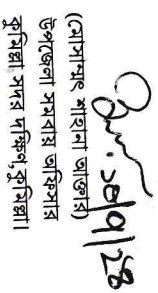 ১০/৭/২৪
(মোসাম্মৎ শাহানা আক্তার)
উপজেলা সমবায় অফিসার
কুমিল্লা সদর দক্ষিণ, কুমিল্লা।